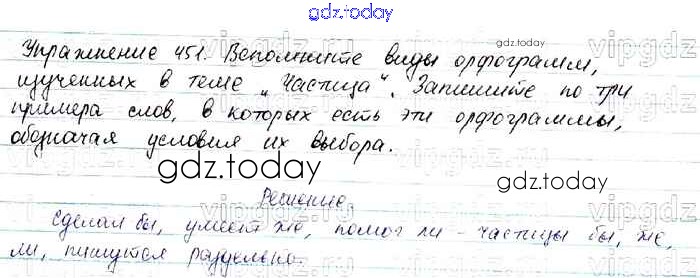 gdz.today
Упражнение 451. Вспомните виды орфограмм,
изученных в теме „Частица“. Запишите по три
примера слов, в которых есть эти орфограммы,
обозначая условия их выбора.
gdz.today
gdz.today
Решение.
Сделал бы, умеет же, помог ли - частицы бы, же,
ли, пишутся раздельно.